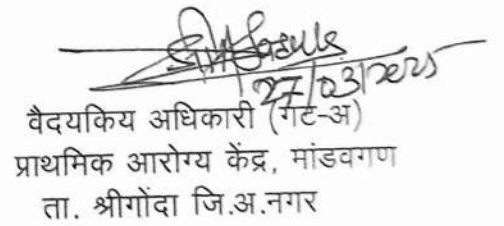 27/03/2025
वैदयकिय अधिकारी (गट-अ)
प्राथमिक आरोग्य केंद्र, मांडवगण
ता. श्रीगोंदा जि.अ.नगर